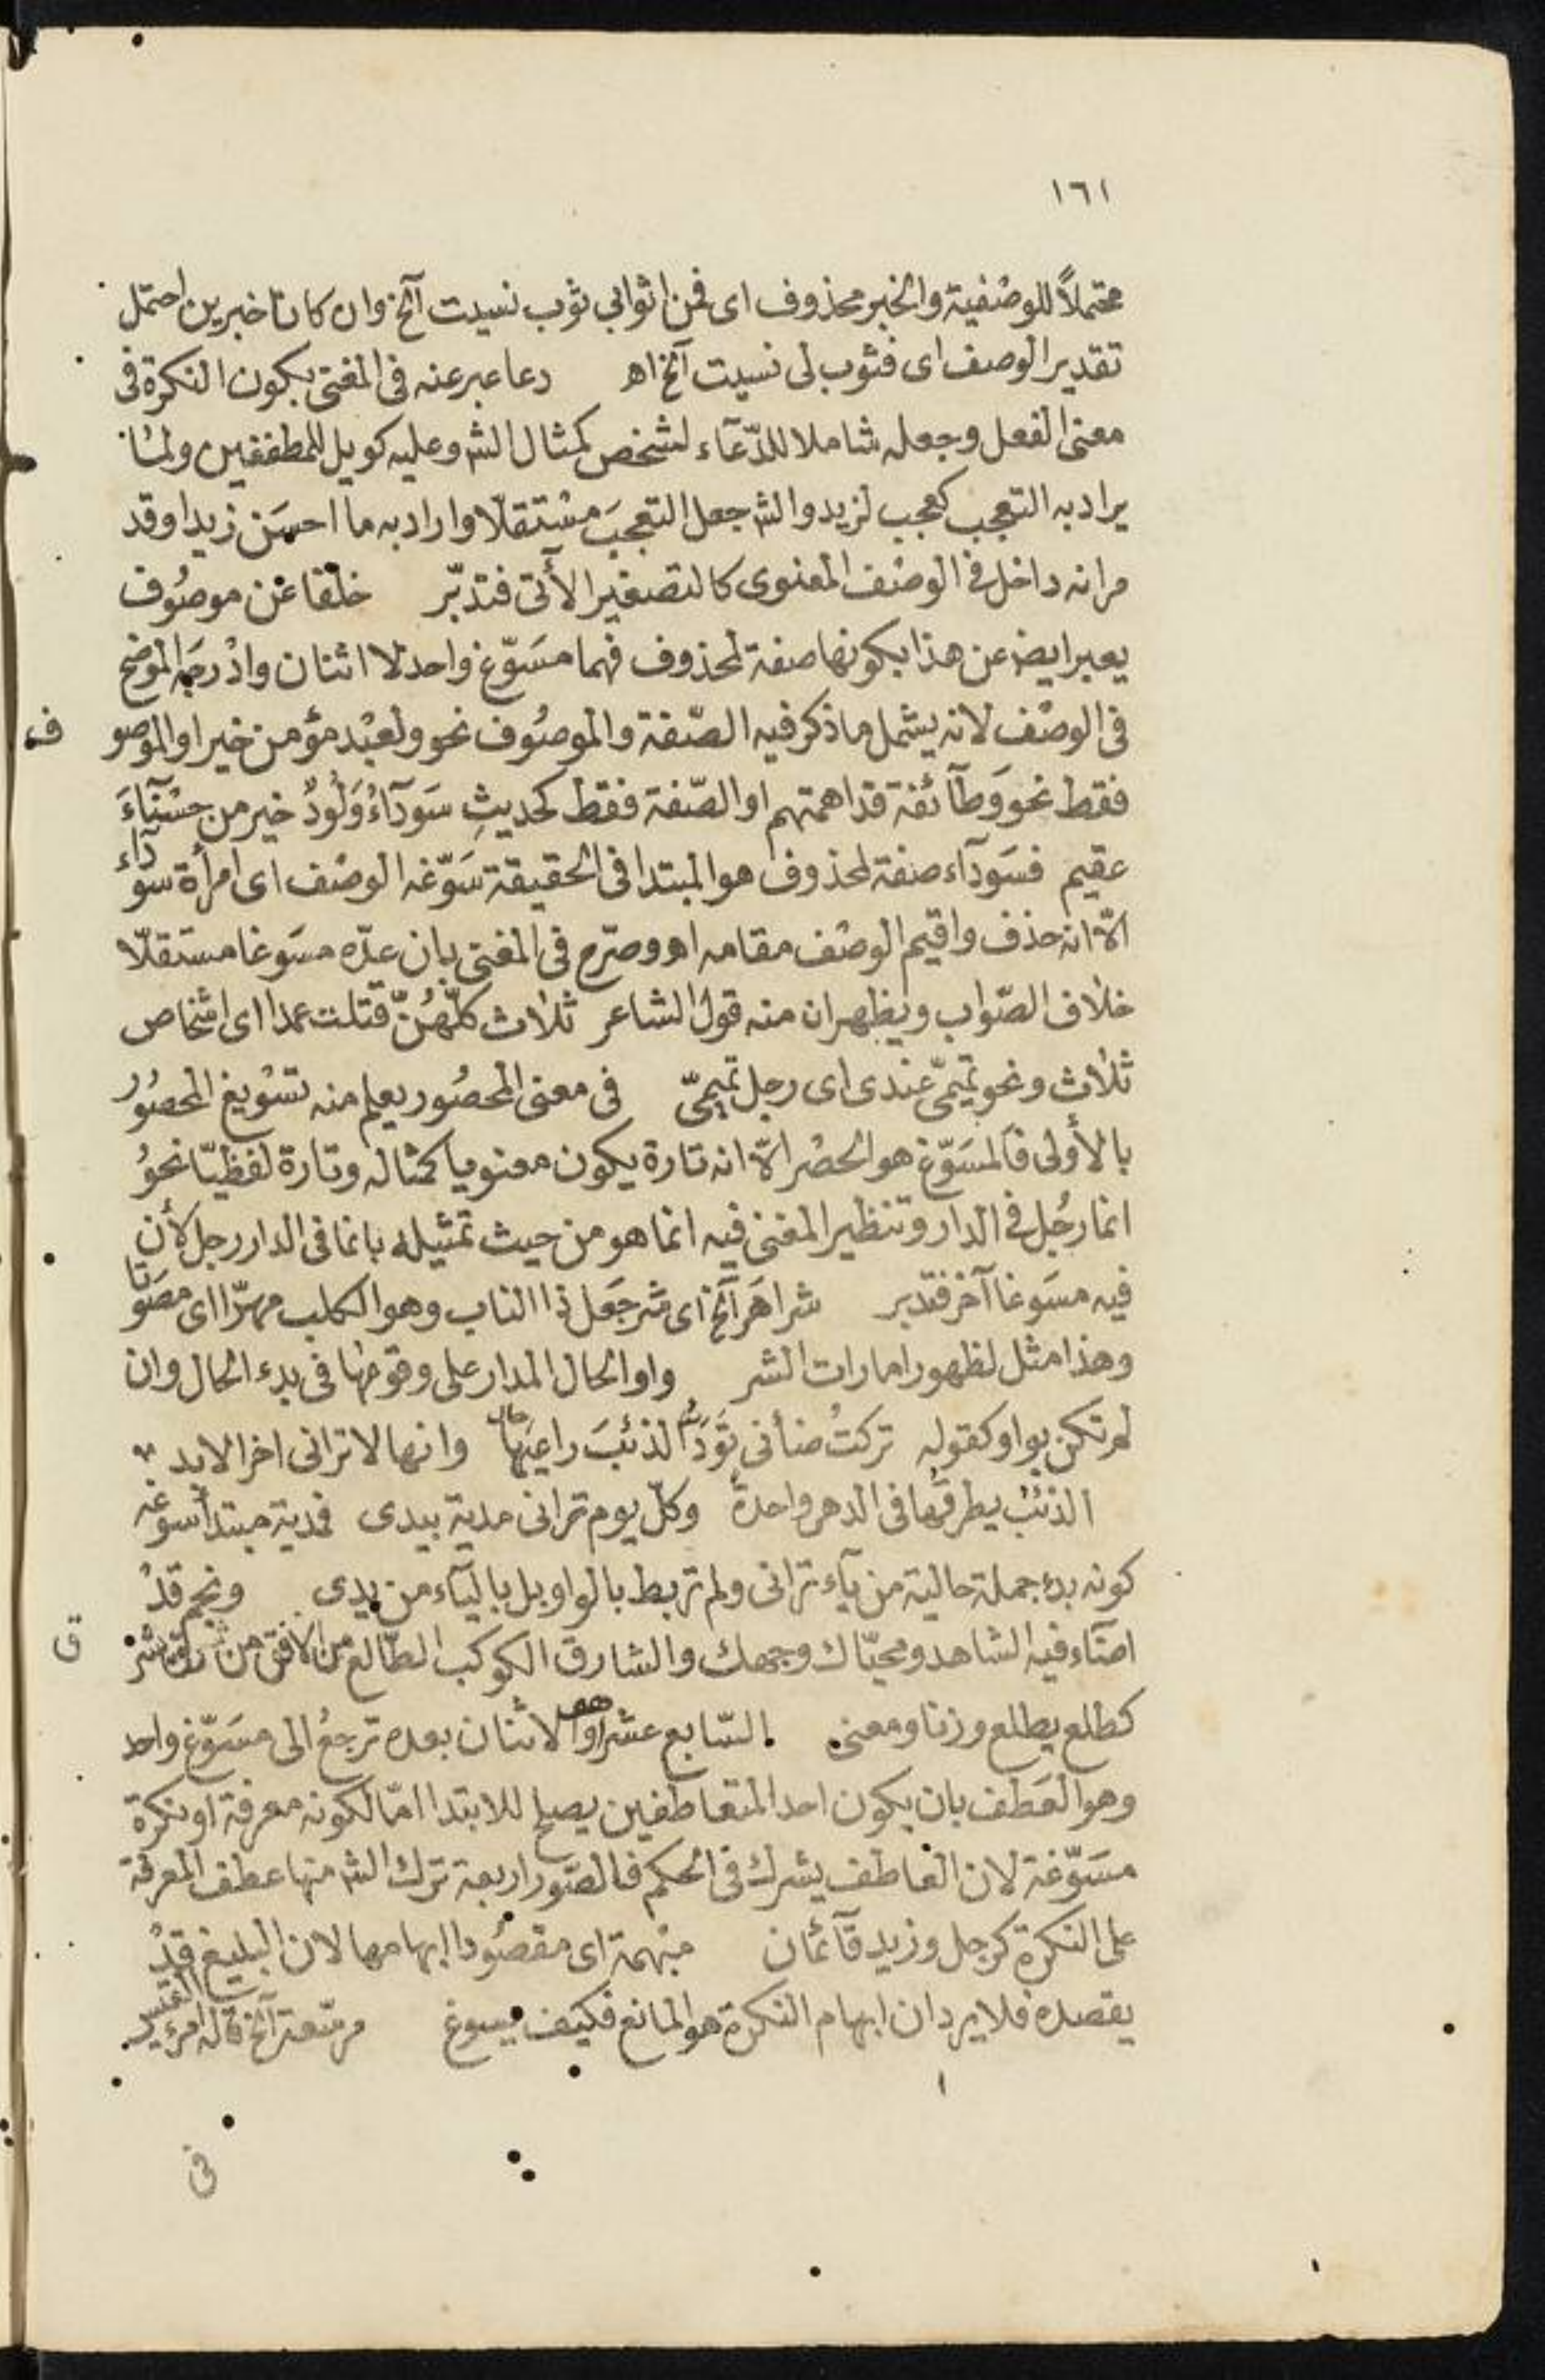 ١٦١
محتملاً للوصفية والخبر محذوف اى فمن اثوابي ثوب نسيت آلخ وان كانا خبرين احتمل
تقدير الوصف اى فثوب لى نسيت آلخ اه دعا عبر عنه فى المغنى بكون النكرة فى
معنى الفعل وجعله شاملا للدّعآء لشخص كمثال الشر وعليه كويل للمطففين ولما
يراد به التعجب كعجب لزيد والشر جعل التعجبَ مستقلّا واراد به ما احسَن زيدا وقد
مر انه داخل فى الوصف المعنوى كالتصغير الأتى فتدبّر خلفا عن موصُوف
يعبر ايضا عن هذا بكونها صفة لمحذوف فهما مسَوّغ واحد لا اثنان وادرجَه الموضح
فى الوصْف لانه يشمل ما ذكر فيه الصّفة والموصُوف نحو ولعبْد مؤمن خير او الموصو ف
فقط نحو وَطآئفة قد اهمتهم او الصّفة فقط كحديثِ سَودآءُ وَلُودٌ خير من حسْنآءَ
عقيم فسَودآء صفة لمحذوف هو المبتدا فى الحقيقة سَوّغه الوصْف اى امرأة سودآء
الاّ انه حذف واقيم الوصْف مقامه اه وصرّح فى المغنى بان عدّه مسَوغا مستقلّا
خلاف الصّواب ويظهر ان منه قول الشاعر ثلاث كلّهُنّ قتلت عمدا اى اشخاص
ثلاث ونحو تميمىّ عندى اى رجل تميمىّ فى معنى المحصُور يعلم منه تسْويغ المحصُورُ
بالأولى فالمسَوّغ هو الحصْر الاّ انه تارة يكون معنويا كمثاله وتارة لفظيّا نحوُ
انما رجُل فى الدار وتنظير المغنى فيه انما هو من حيث تمثيله بانما فى الدار رجل لأن
فيه مسَوغا آخر فتدبر شر اهَر آلخ اى شر جَعل ذا الناب وهو الكلب مهرّا اى مصَوتا
وهذا مثل لظهور امارات الشر واو الحال المدار على وقوعها فى بدء الحال وان
لم تكن بواو كقوله تركتُ ضأنى تَوَدُّ الذئبَ راعيَها وانها لا ترانى اخر الابد
الذئبُ يطرقُها فى الدهر واحدةً وكلّ يوم ترانى مدية بيدى فمدية مبتدأ سوغه
كونه بدء جملة حالية من يآء ترانى ولم تربط بالواو بل باليآء من يدى ونجم قدْ
اضآء فيه الشاهد ومحيّاك وجهك والشارق الكوكب الطّالع من الافق من شرق يشر ق
كطلع يطلع وزنا ومعنى السّابع عشر هو والاثنان بعده ترجعُ الى مسَوّغ واحد
وهو العَطف بان يكون احد المتعاطفين يصلح للابتدا امّا لكونه معرفة او نكرة
مسَوّغة لان العاطف يشرك فى الحكم فالصّور اربعة ترك الشر منها عطف المعرفة
على النكرة كرجل وزيد قآئمان مبْهمة اى مقصُودا ابهامها لان البليغ قدْ
يقصده فلا يرد ان ابهام النكرة هو المانع فكيف يسوغ مرسّعة آلخ قاله امرئ القيس
فى